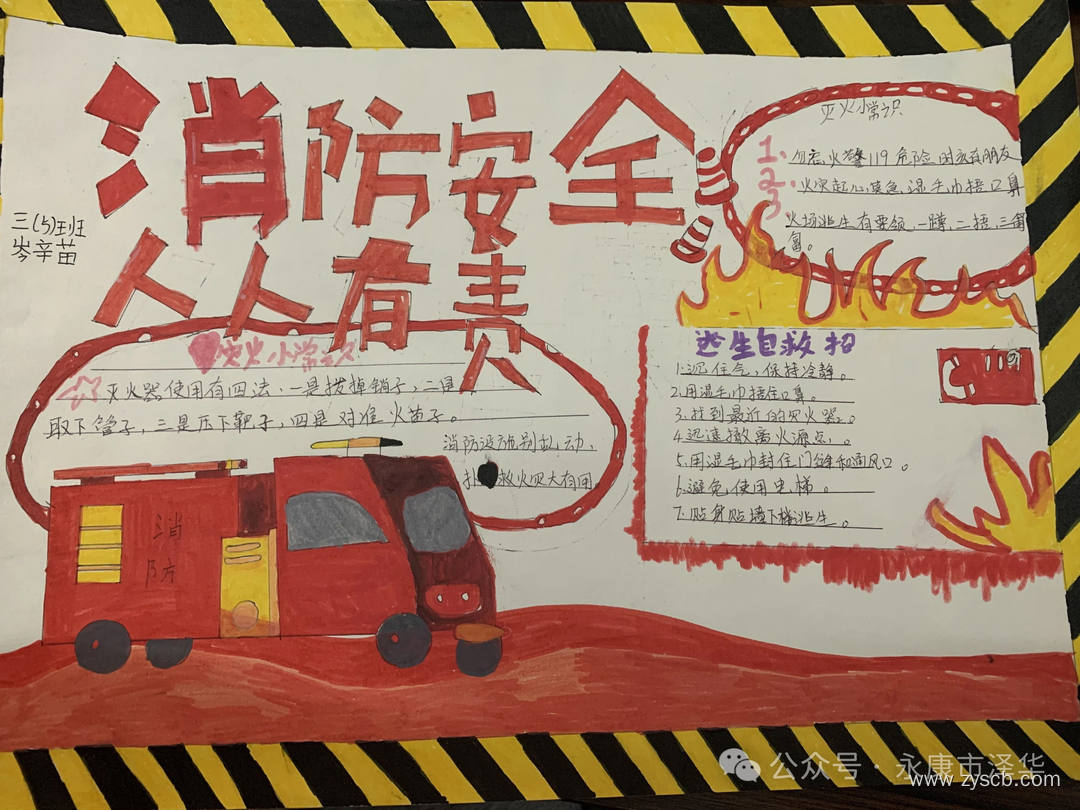 消防安全
人人有责
三(5)班
岑辛苗
灭火小常识
1. 勿忘火警119危险时家有朋友
2. 火灾起心莫急湿毛巾捂口鼻
3 火场逃生有要领,一蹲,二捂,三匍
灭火小常识
灭火器使用有四法、一是拔掉销子,二是
取下管子,三是压下靶子,四是对准火苗子。
消防设施别乱动、
扑救火灾大有用。
逃生自救招
1.沉住气,保持冷静。
2.用湿毛巾捂住口鼻。
3.找到最近的灭火器。
4.迅速撤离火源点。
5.用湿毛巾封住门缝和通风口。
6.避免使用电梯。
7.贴身贴墙下梯逃生。
119
消
防
公众号·永康市泽华
www.zyscb.com